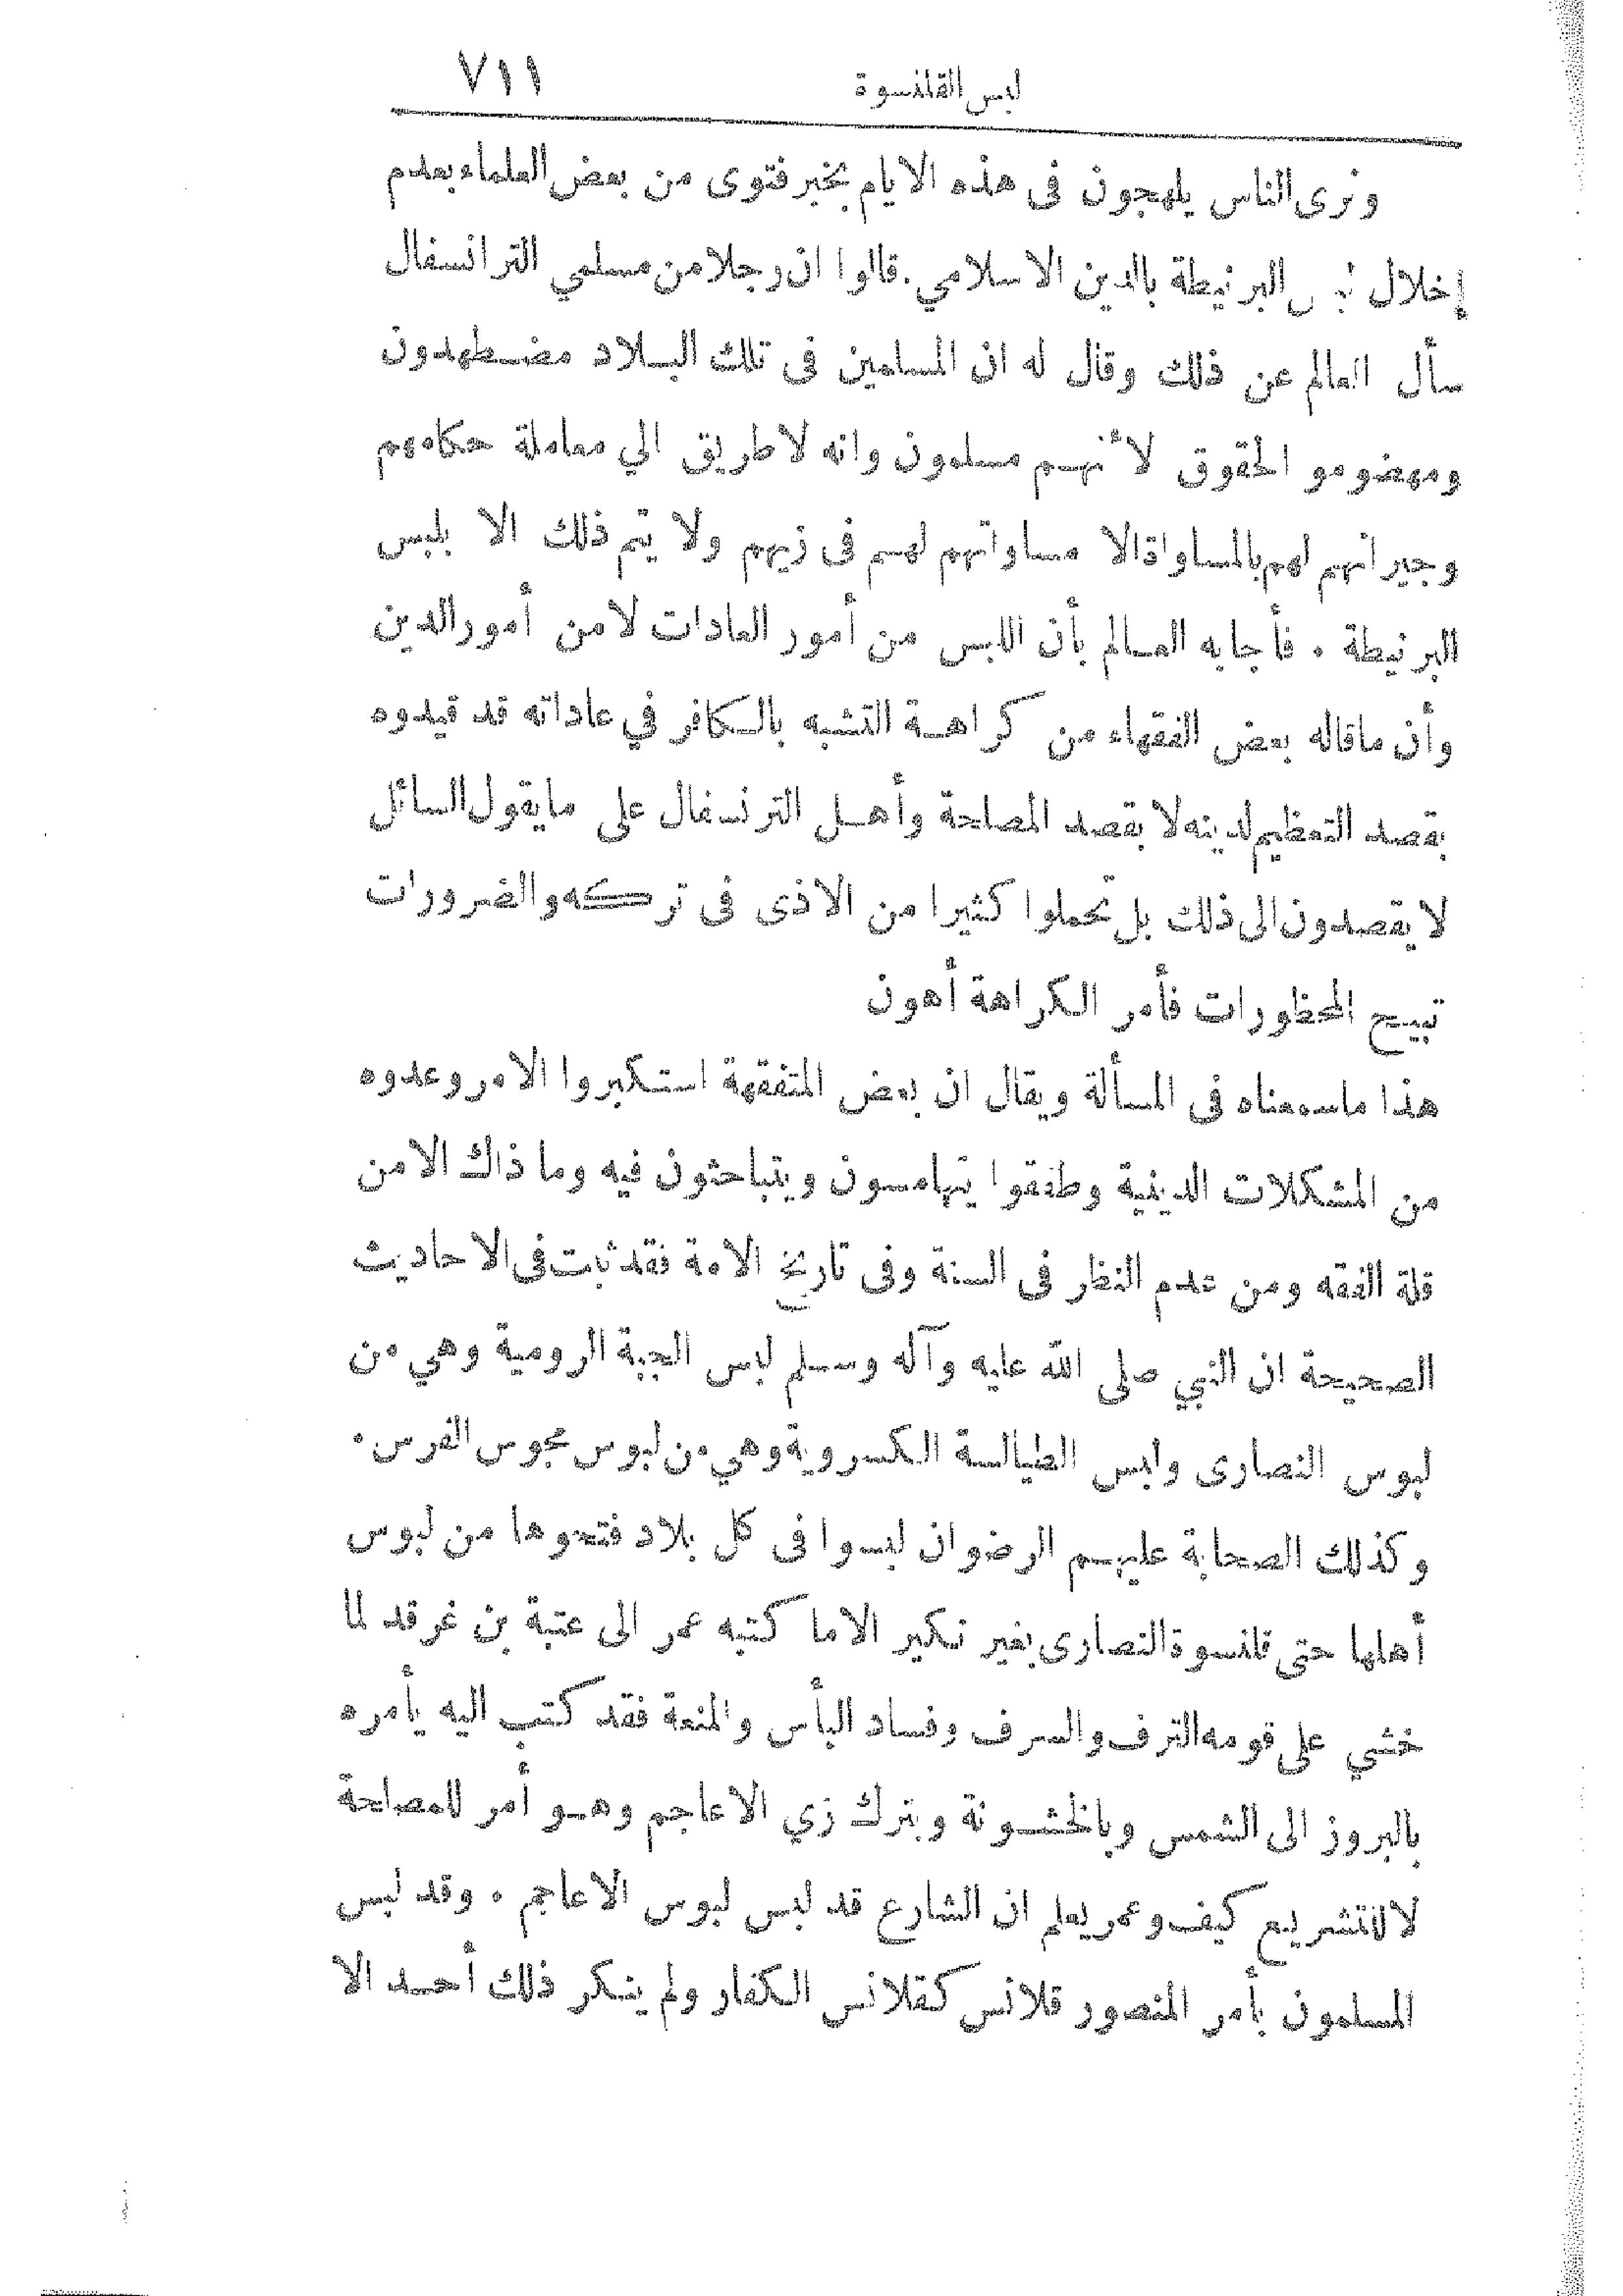 لبس القلنسوة ٧١١
ونرى الناس يلهجون فى هذه الايام بخبر فتوى من بعض العلماء بعدم
إخلال لبس البرنيطة بالدين الاسلامي. قالوا ان رجلا من مسلمي الترانسفال
سأل العالم عن ذلك وقال له ان المسلمين فى تلك البلاد مضطهدون
ومهضومو الحقوق لأنهم مسلمون وانه لا طريق الي معاملة حكامهم
وجيرانهم لهم بالمساواة الا مساواتهم لهم فى زيهم ولا يتم ذلك الا بلبس
البرنيطة . فأجابه العالم بأن اللبس من أمور العادات لا من أمور الدين
وأن ماقاله بعض الفقهاء من كراهة التشبه بالكافر في عاداته قد قيدوه
بقصد التعظيم لدينه لا بقصد المصلحة وأهل الترنسفال على مايقول السائل
لا يقصدون الى ذلك بل تحملوا كثيرا من الاذى فى تركه والضرورات
تبيح المحظورات فأمر الكراهة أهون
هذا ماسمعناه فى المسألة ويقال ان بعض المتفقهة استكبروا الامر وعدوه
من المشكلات الدينية وطفقوا يتهامسون ويتباحثون فيه وما ذاك الا من
قلة الفقه ومن عدم النظر فى السنة وفى تاريخ الامة فقد ثبت فى الاحاديث
الصحيحة ان النبي صلى الله عليه وآله وسلم لبس الجبة الرومية وهي من
لبوس النصارى ولبس الطيالسة الكسروية وهي من لبوس مجوس الفرس .
وكذلك الصحابة عليهم الرضوان لبسوا فى كل بلاد فتحوها من لبوس
أهلها حتى قلنسوة النصارى بغير نكير الا ما كتبه عمر الى عتبة بن غرقد لما
خشي على قومه الترف والسرف وفساد البأس والمنعة فقد كتب اليه يأمره
بالبروز الى الشمس وبالخشونة وبترك زي الاعاجم وهو أمر للمصلحة
لا للتشريع كيف وعمر يعلم ان الشارع قد لبس لبوس الاعاجم . وقد لبس
المسلمون بأمر المنصور قلانس كقلانس الكفار ولم ينكر ذلك أحد الا